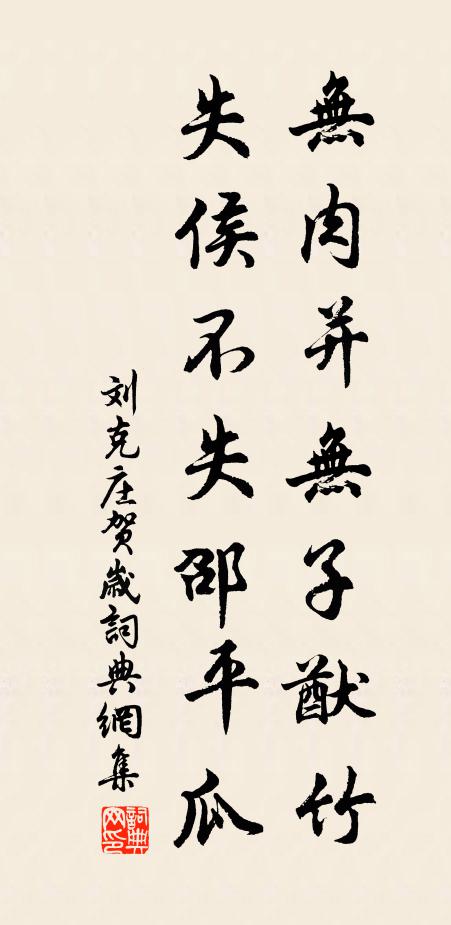 無肉并無子猷竹
失侯不失邵平瓜
刘克庄贺歲詞典網集
詞典网印